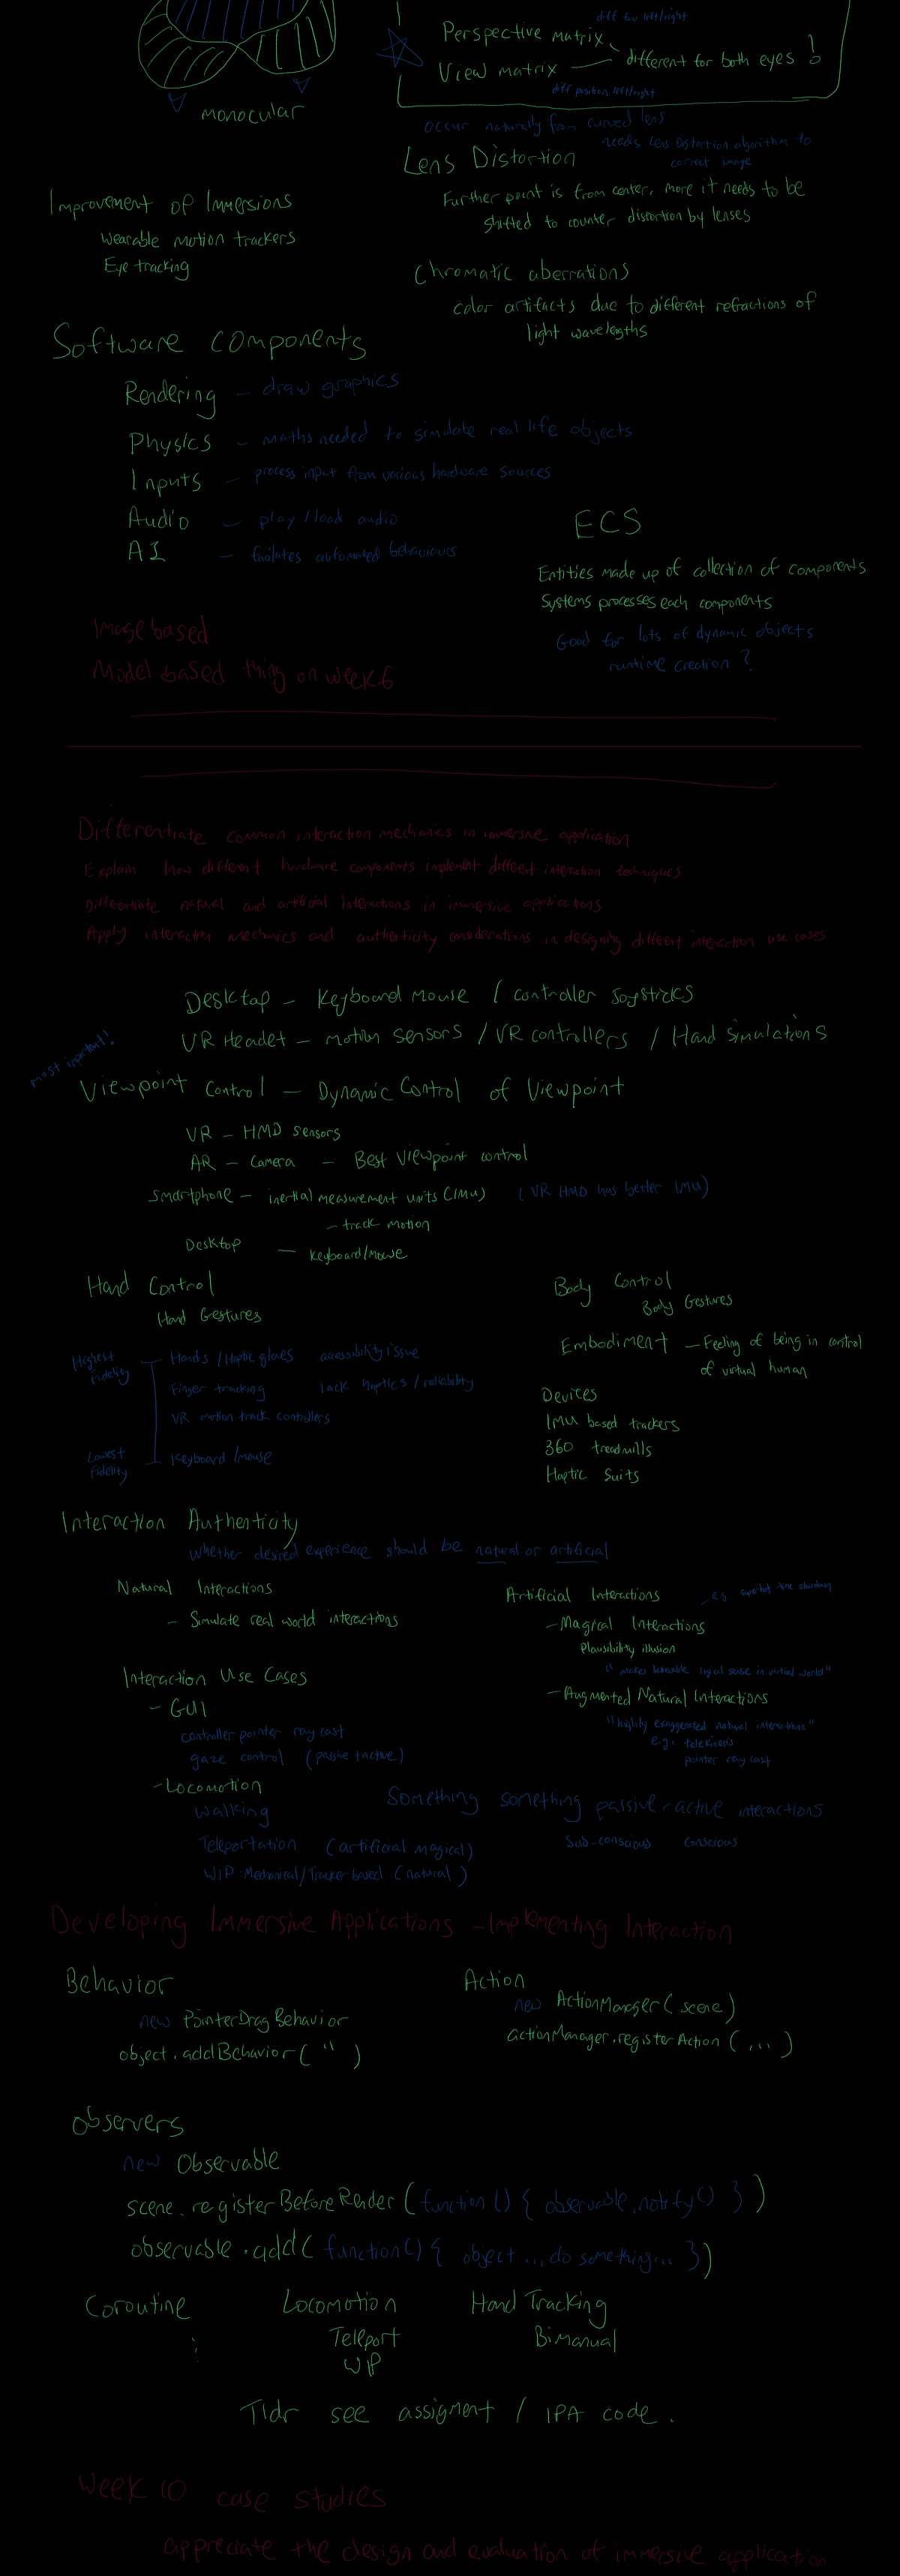 diff fov left/right
Perspective matrix
View matrix — different for both eyes !
diff position left/right
monocular
occur naturally from curved lens
needs Lens Distortion algorithm to
correct image
Lens Distortion
Further point is from center, more it needs to be
shifted to counter distortion by lenses
Improvement of Immersions
Wearable motion trackers
Eye tracking
Chromatic aberrations
color artifacts due to different refractions of
light wavelengths
Software components
Rendering — draw graphics
Physics — maths needed to simulate real life objects
Inputs — process input from various hardware sources
Audio — play / load audio
AI — facilates automated behaviours
ECS
Entities made up of collection of components
Systems processes each components
Good for lots of dynamic objects
runtime creation ?
Image based
Model based thing on week 6
Differentiate common interaction mechanics in immersive application
Explain how different hardware components implement different interaction techniques
Differentiate natural and artificial interactions in immersive applications
Apply interaction mechanics and authenticity considerations in designing different interaction use cases
Desktop — Keyboard mouse / controller joysticks
VR Headet — motion sensors / VR controllers / Hand simulations
most important!
Viewpoint Control — Dynamic Control of Viewpoint
VR — HMD sensors
AR — Camera — Best Viewpoint control
Smartphone — inertial measurement units (IMU) (VR HMD has better IMU)
— track motion
Desktop — Keyboard/Mouse
Hand Control
Hand Gestures
Highest Fidelity
Hands / Haptic gloves accessibility issue
Finger tracking lack haptics / reliability
VR motion track controllers
Lowest Fidelity
Keyboard /mouse
Body Control
Body Gestures
Embodiment — Feeling of being in control
of virtual human
Devices
IMU based trackers
360 treadmills
Haptic Suits
Interaction Authenticity
Whether desired experience should be natural or artificial
Natural Interactions
— Simulate real world interactions
Artificial Interactions e.g. superhot time
— Magical Interactions
Plausibility illusion
" makes logical sense in virtual world"
— Augmented Natural Interactions
"highly exaggerated natural interactions"
e.g. telekinesis
pointer ray cast
Interaction Use Cases
— GUI
controller pointer ray cast
gaze control (passive + active)
— Locomotion
Walking
Teleportation (artificial magical)
WIP Mechanical/Tracker based (natural)
Something something passive - active interactions
Sub-conscious conscious
Developing Immersive Applications — Implementing Interaction
Behavior
new PointerDragBehavior
object.addBehavior( " )
Action
new ActionManager( scene)
actionManager.registerAction (...)
Observers
new Observable
scene.registerBeforeRender (function () { observable.notify() } )
observable.add( function() { object ... do something... })
Coroutine
⋮
Locomotion
Teleport
WIP
Hand Tracking
Bimanual
Tldr see assigment / IPA code.
Week 10 case studies
appreciate the design and evaluation of immersive application